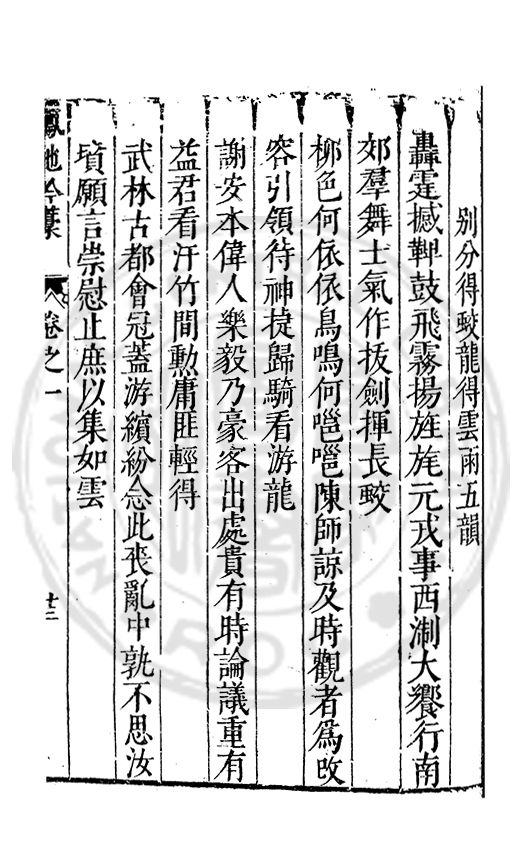 別分得蛟龍得雲雨五韻
轟霆撼鞞鼓飛霧揚旌旄元戎事西淛大饗行南
郊羣舞士氣作拔劍揮長蛟
柳色何依依鳥鳴何嗈嗈陳師諒及時觀者爲改
容引領待神捷歸騎看游龍
謝安本偉人樂毅乃豪客出處貴有時論議重有
益君看汗竹間勳庸匪輕得
武林古都會冠蓋游繽紛念此喪亂中孰不思汝
墳願言崇慰止庶以集如雲
鳳池吟稾
卷之一
十二